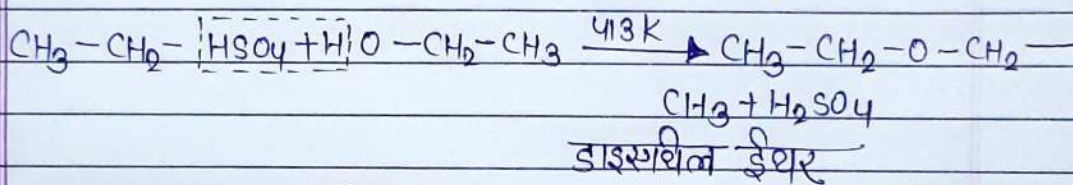 CH₃-CH₂-HSO₄+H O-CH₂-CH₃ 413K → CH₃-CH₂-O-CH₂-
CH₃+H₂SO₄
डाइएथिल ईथर